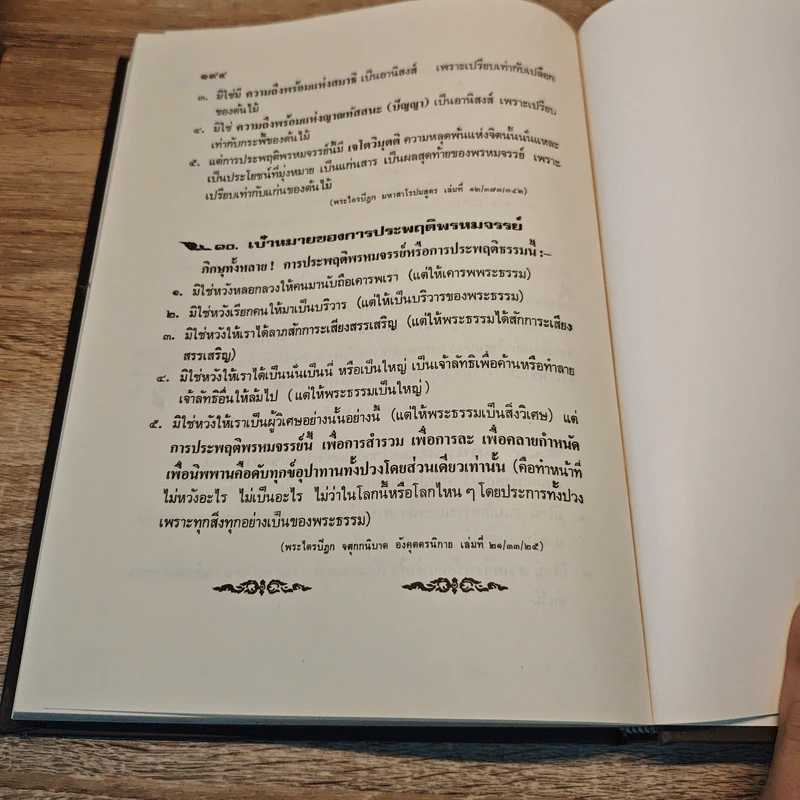 ๑๙๔
๓. มิใช่มี ความถึงพร้อมแห่งสมาธิ เป็นอานิสงส์ เพราะเปรียบเท่ากับเปลือก
ของต้นไม้
๔. มิใช่ ความถึงพร้อมแห่งญาณทัสสนะ (ปัญญา) เป็นอานิสงส์ เพราะเปรียบ
เท่ากับกระพี้ของต้นไม้
๕. แต่การประพฤติพรหมจรรย์นี้มี เจโตวิมุตติ ความหลุดพ้นแห่งจิตนั้นนั่นแหละ
เป็นประโยชน์ที่มุ่งหมาย เป็นแก่นสาร เป็นผลสุดท้ายของพรหมจรรย์ เพราะ
เปรียบเท่ากับแก่นของต้นไม้
(พระไตรปิฎก มหาสาโรปมสูตร เล่มที่ ๑๒/๓๗๓/๓๕๒)
๓๐. เป้าหมายของการประพฤติพรหมจรรย์
ภิกษุทั้งหลาย! การประพฤติพรหมจรรย์หรือการประพฤติธรรมนี้ :-
๑. มิใช่หวังหลอกลวงให้คนมานับถือเคารพเรา (แต่ให้เคารพพระธรรม)
๒. มิใช่หวังเรียกคนให้มาเป็นบริวาร (แต่ให้เป็นบริวารของพระธรรม)
๓. มิใช่หวังให้เราได้ลาภสักการะเสียงสรรเสริญ (แต่ให้พระธรรมได้สักการะเสียง
สรรเสริญ)
๔. มิใช่หวังให้เราได้เป็นนั่นเป็นนี่ หรือเป็นใหญ่ เป็นเจ้าลัทธิเพื่อค้านหรือทำลาย
เจ้าลัทธิอื่นให้ล้มไป (แต่ให้พระธรรมเป็นใหญ่)
๕. มิใช่หวังให้เราเป็นผู้วิเศษอย่างนั้นอย่างนี้ (แต่ให้พระธรรมเป็นสิ่งวิเศษ) แต่
การประพฤติพรหมจรรย์นี้ เพื่อการสำรวม เพื่อการละ เพื่อคลายกำหนัด
เพื่อนิพพานคือดับทุกข์อุปาทานทั้งปวงโดยส่วนเดียวเท่านั้น (คือทำหน้าที่
ไม่หวังอะไร ไม่เป็นอะไร ไม่ว่าในโลกนี้หรือโลกไหน ๆ โดยประการทั้งปวง
เพราะทุกสิ่งทุกอย่างเป็นของพระธรรม)
(พระไตรปิฎก จตุกกนิบาต อังคุตตรนิกาย เล่มที่ ๒๑/๓๓/๒๕)